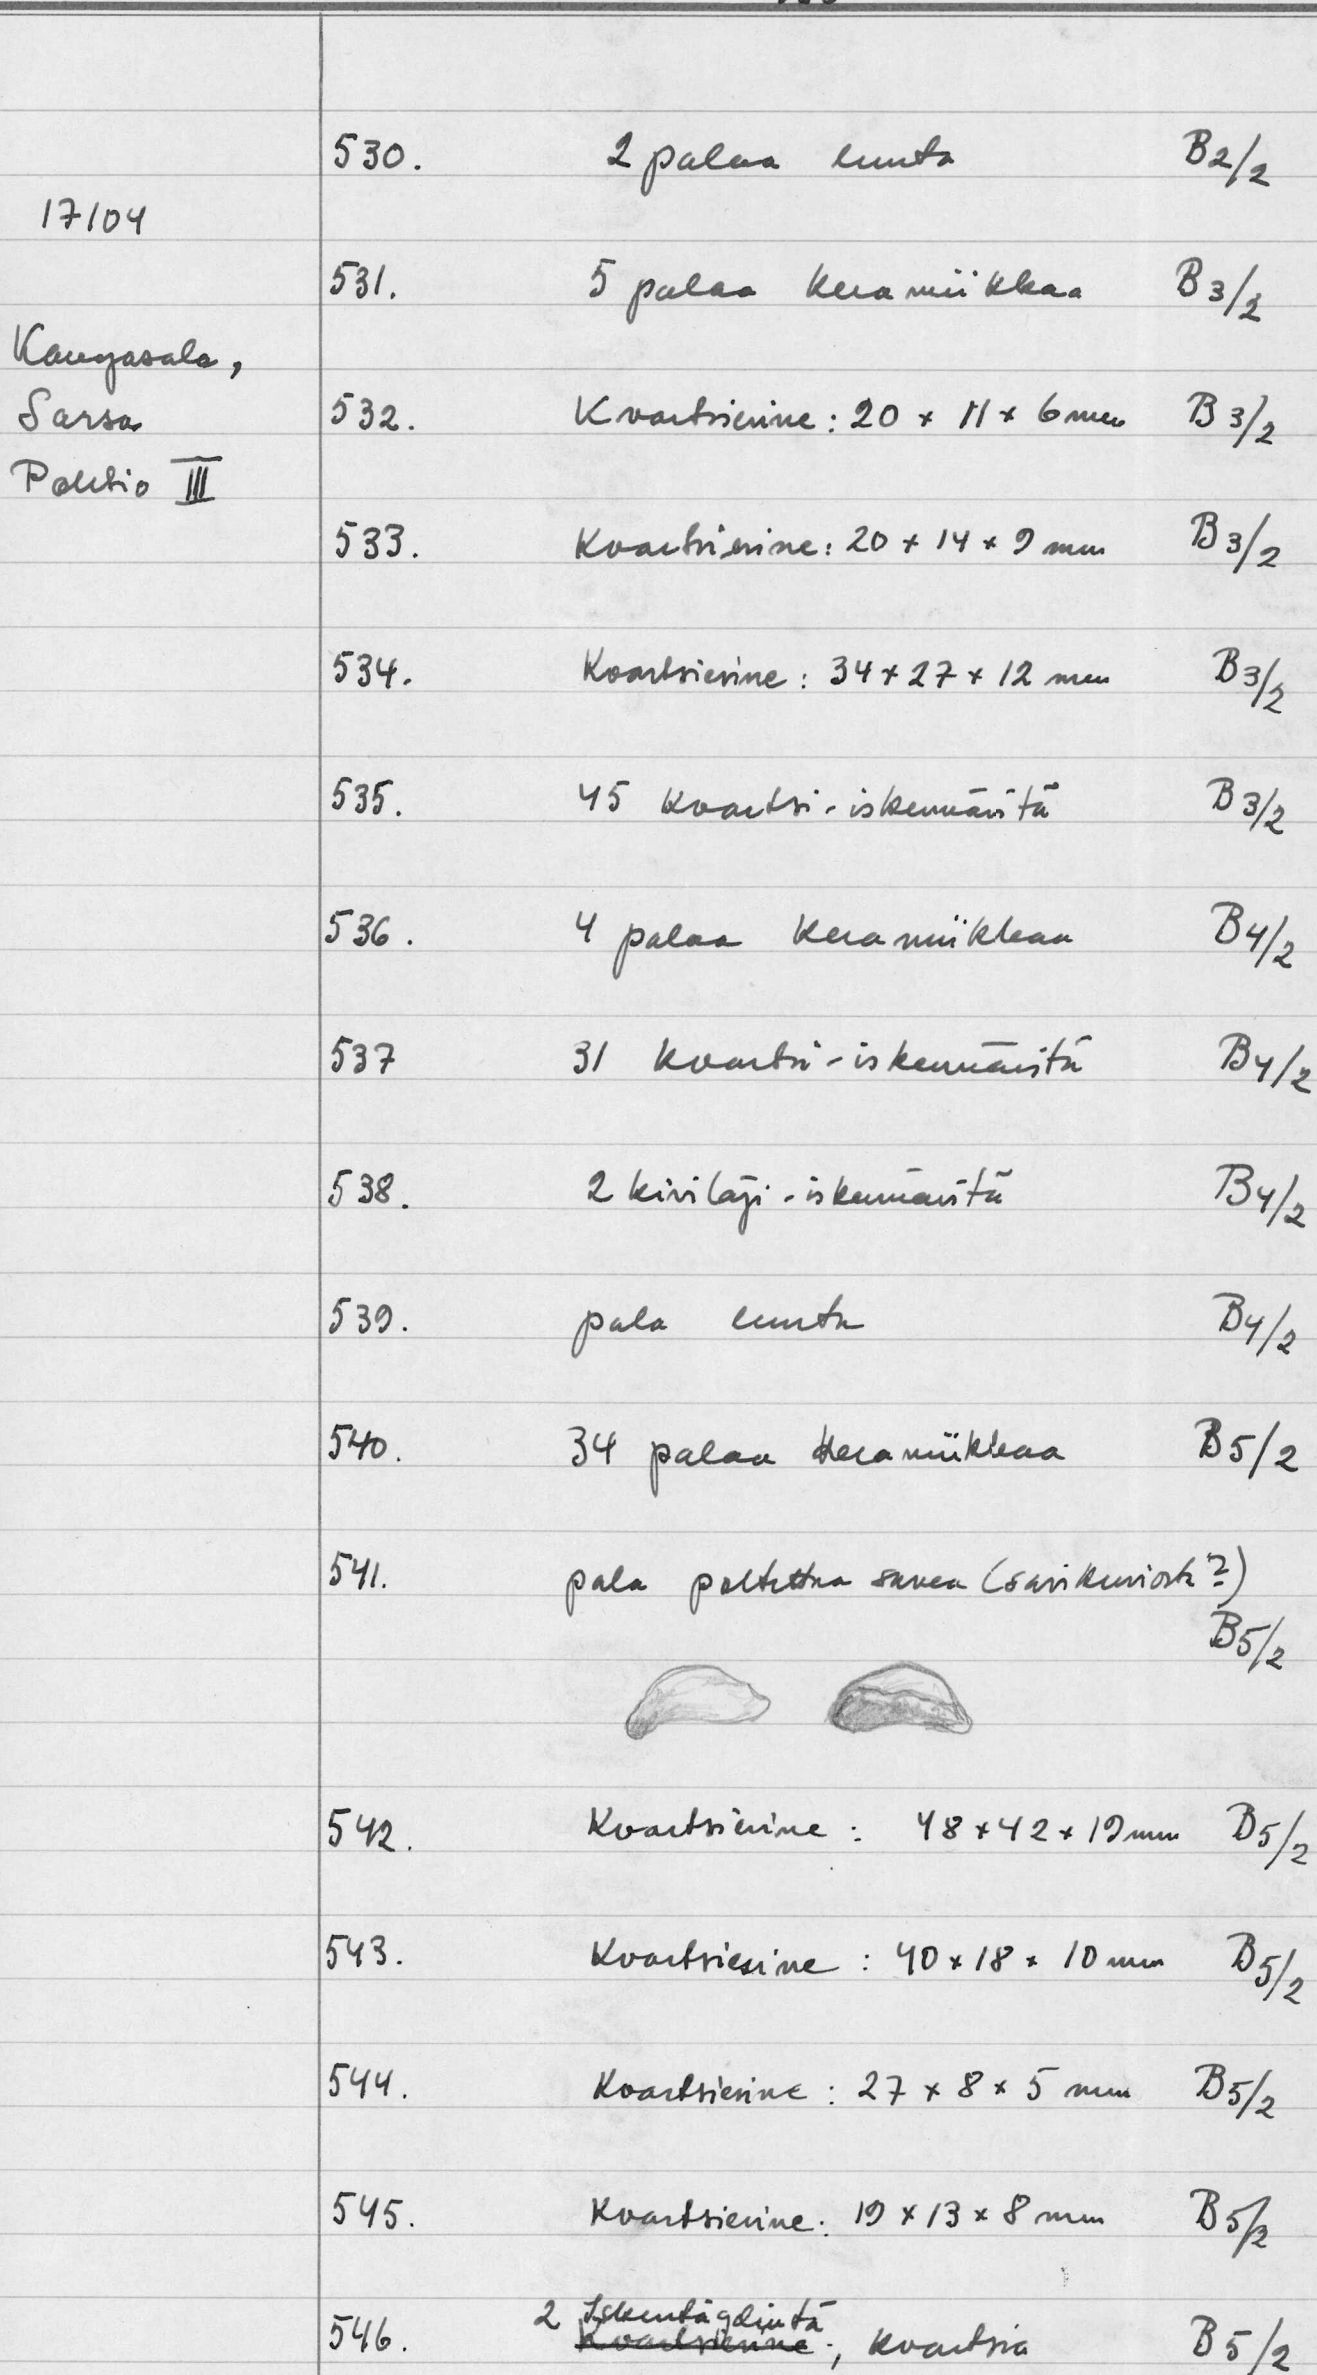 530. 2 palaa luuta B2/2
17104
531. 5 palaa keramiikkaa B3/2
Kangasala,
Sarsa
532. Kvartsiesine: 20 x 11 x 6 mm B3/2
Palsio III
533. Kvartsiesine: 20 x 14 x 9 mm B3/2
534. Kvartsiesine: 34 x 27 x 12 mm B3/2
535. 45 kvartsi-iskennäistä B3/2
536. 4 palaa keramiikkaa B4/2
537 31 kvartsi-iskennäistä B4/2
538. 2 kivilaji-iskennäistä B4/2
539. pala luuta B4/2
540. 34 palaa keramiikkaa B5/2
541. pala poltettua savea (savikuviosta?)
B5/2
542. Kvartsiesine: 48 x 42 x 19 mm B5/2
543. Kvartsiesine: 40 x 18 x 10 mm B5/2
544. Kvartsiesine: 27 x 8 x 5 mm B5/2
545. Kvartsiesine: 19 x 13 x 8 mm B5/2
2 Iskentäydintä
546. Kvartsiesine; kvartsia B5/2